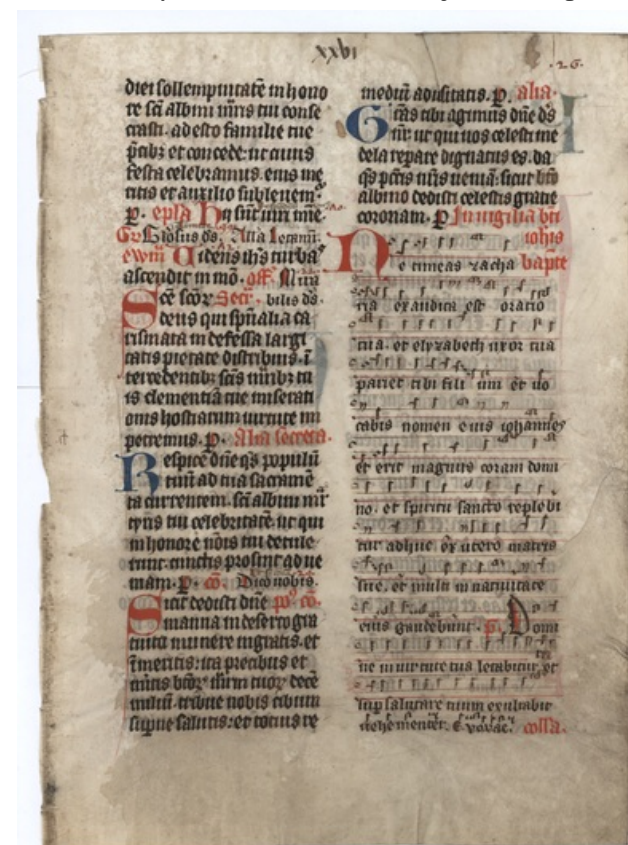 xxvi
.26.
diei sollempnitatē in hono
re sc̄i albini m̄ris tui conse
crasti. adesto familie tue
p̄cibꝫ et concede. ut cuius
festa celebramus. eius me
ritis et auxilio subleuem᷑.
P. ep̄la Hij sūt um̄ mie
Gr̄ Gl̄osus ds̄. Alla Letamī.
ewm̄ Videns ih̄s turbas
ascendit in mō. off. Mira
Sc̄e sc̄oꝝ Secr̄. bilis ds̄.
deus qui sp̄ualia ca
rismata indefessa largi
tatis pietate distribuis. ī
tercedentibꝫ sc̄is m̄ribꝫ tu
is clementia tue miserati
onis hostiarum uirtute im
petremus. P. Alia secreta.
Respice dn̄e qs̄ populū
tuū ad tua sacramē
ta currentem. sc̄i albini mr̄
tyris tui celebritatē. ut qui
in honore nōis tui detule
runt. cunctis prosint ad ue
niam. P. cō. Dico uobis.
Sicut dedisti dn̄e po᷑ cō.
manna in deserto gra
tuita munere ingratis. et
īmeritis. ita precibus et
m̄itis bt̄oꝝ m̄rm̄ tuoꝝ decē
milium. tribue nobis cibum
sup̄ne salutis: et totius re
medium aduersitatis. P. alia.
Grās tibi agimus dn̄e ds̄
nr̄. ut qui nos celesti me
dela repare dignatus es. da
qs̄ pctis nr̄is ueniā. sicut bt̄o
albino dedisti celestis gratie
coronam. P. In uigilia bt̄i
ioh̄is
Ne timeas zacha bapt̄e
ria exaudita est oratio
tua. et elyzabeth uxor tua
pariet tibi filium et uo
cabis nomen eius iohannes
et erit magnus coram domi
no. et spiritu sancto replebi
tur adhuc ex utero matris
sue. et multi in natiuitate
eius gaudebunt. p̄. Domi
ne in uirtute tua letabitur. et
sup̄ salutare tuum exultabit
uehementer. Euouae. coll̄a.